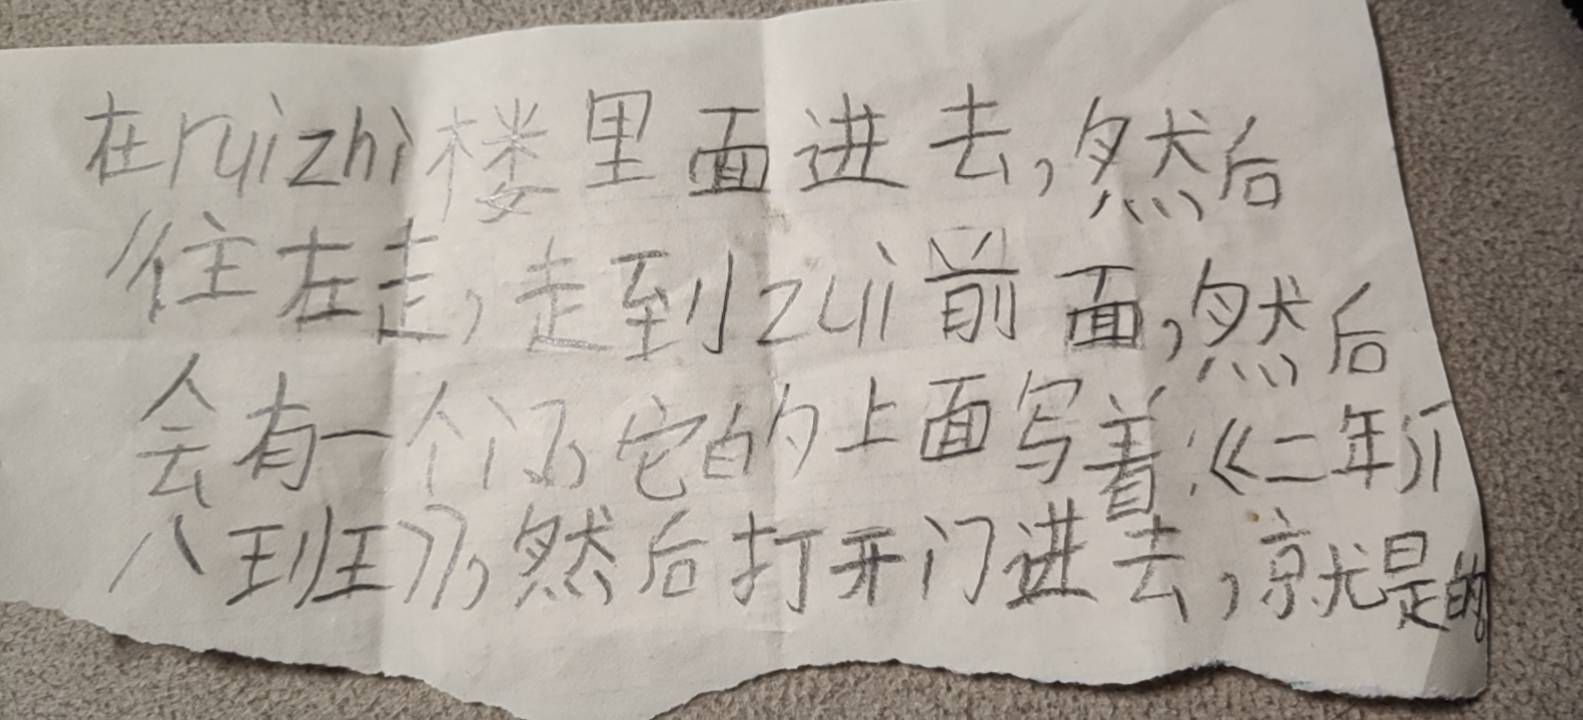 在ruizhi楼里面进去,然后
往左走,走到zui前面,然后
会有一个门,它的上面写着:《二年
八班》,然后打开门进去,就是的